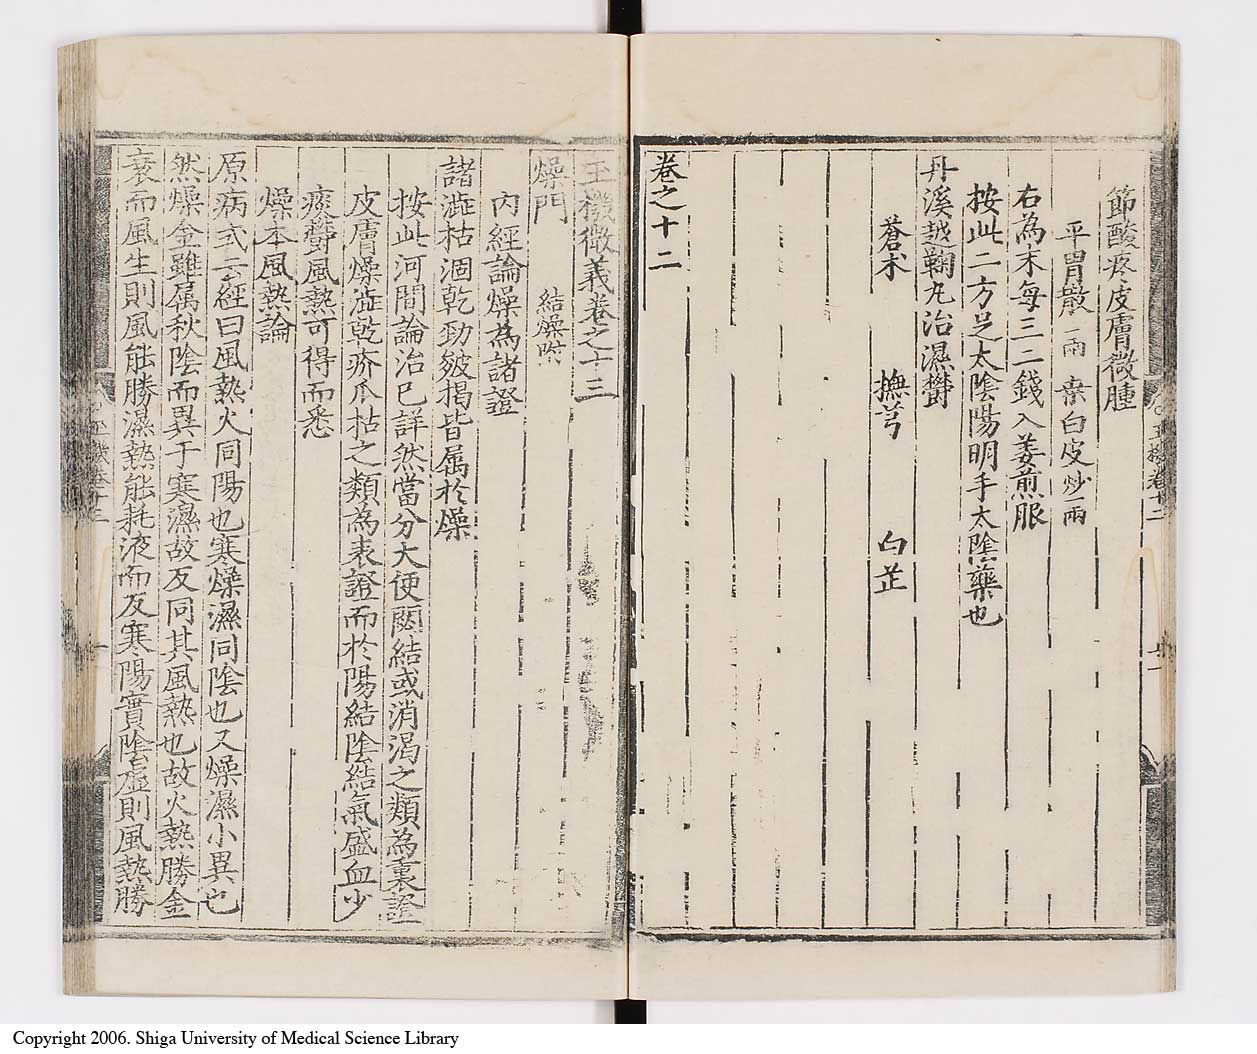 節酸疼皮膚微腫
平胃散一両 桒白皮炒一両
右為末每三二錢入姜煎服
按此二方足太陰陽明手太陰藥也
丹溪越鞠丸治濕欝
蒼朮 撫芎 白芷
卷之十二
玉機微義卷之十三
燥門 結燥附
内經論燥為諸證
諸澁枯涸乾勁皴揭皆属於燥
按此河間論治已詳然當分大便閟結或消渴之類為裏證
皮膚燥澁乾疥爪枯之類為表證而於陽結陰結氣盛血少
痰欝風熱可得而悉
燥本風熱論
原病式云經曰風熱火同陽也寒燥濕同陰也又燥濕小異也
然燥金雖属秋陰而異于寒濕故反同其風熱也故火熱勝金
衰而風生則風能勝濕熱能耗液而反寒陽實陰虛則風熱勝
Copyright 2006. Shiga University of Medical Science Library